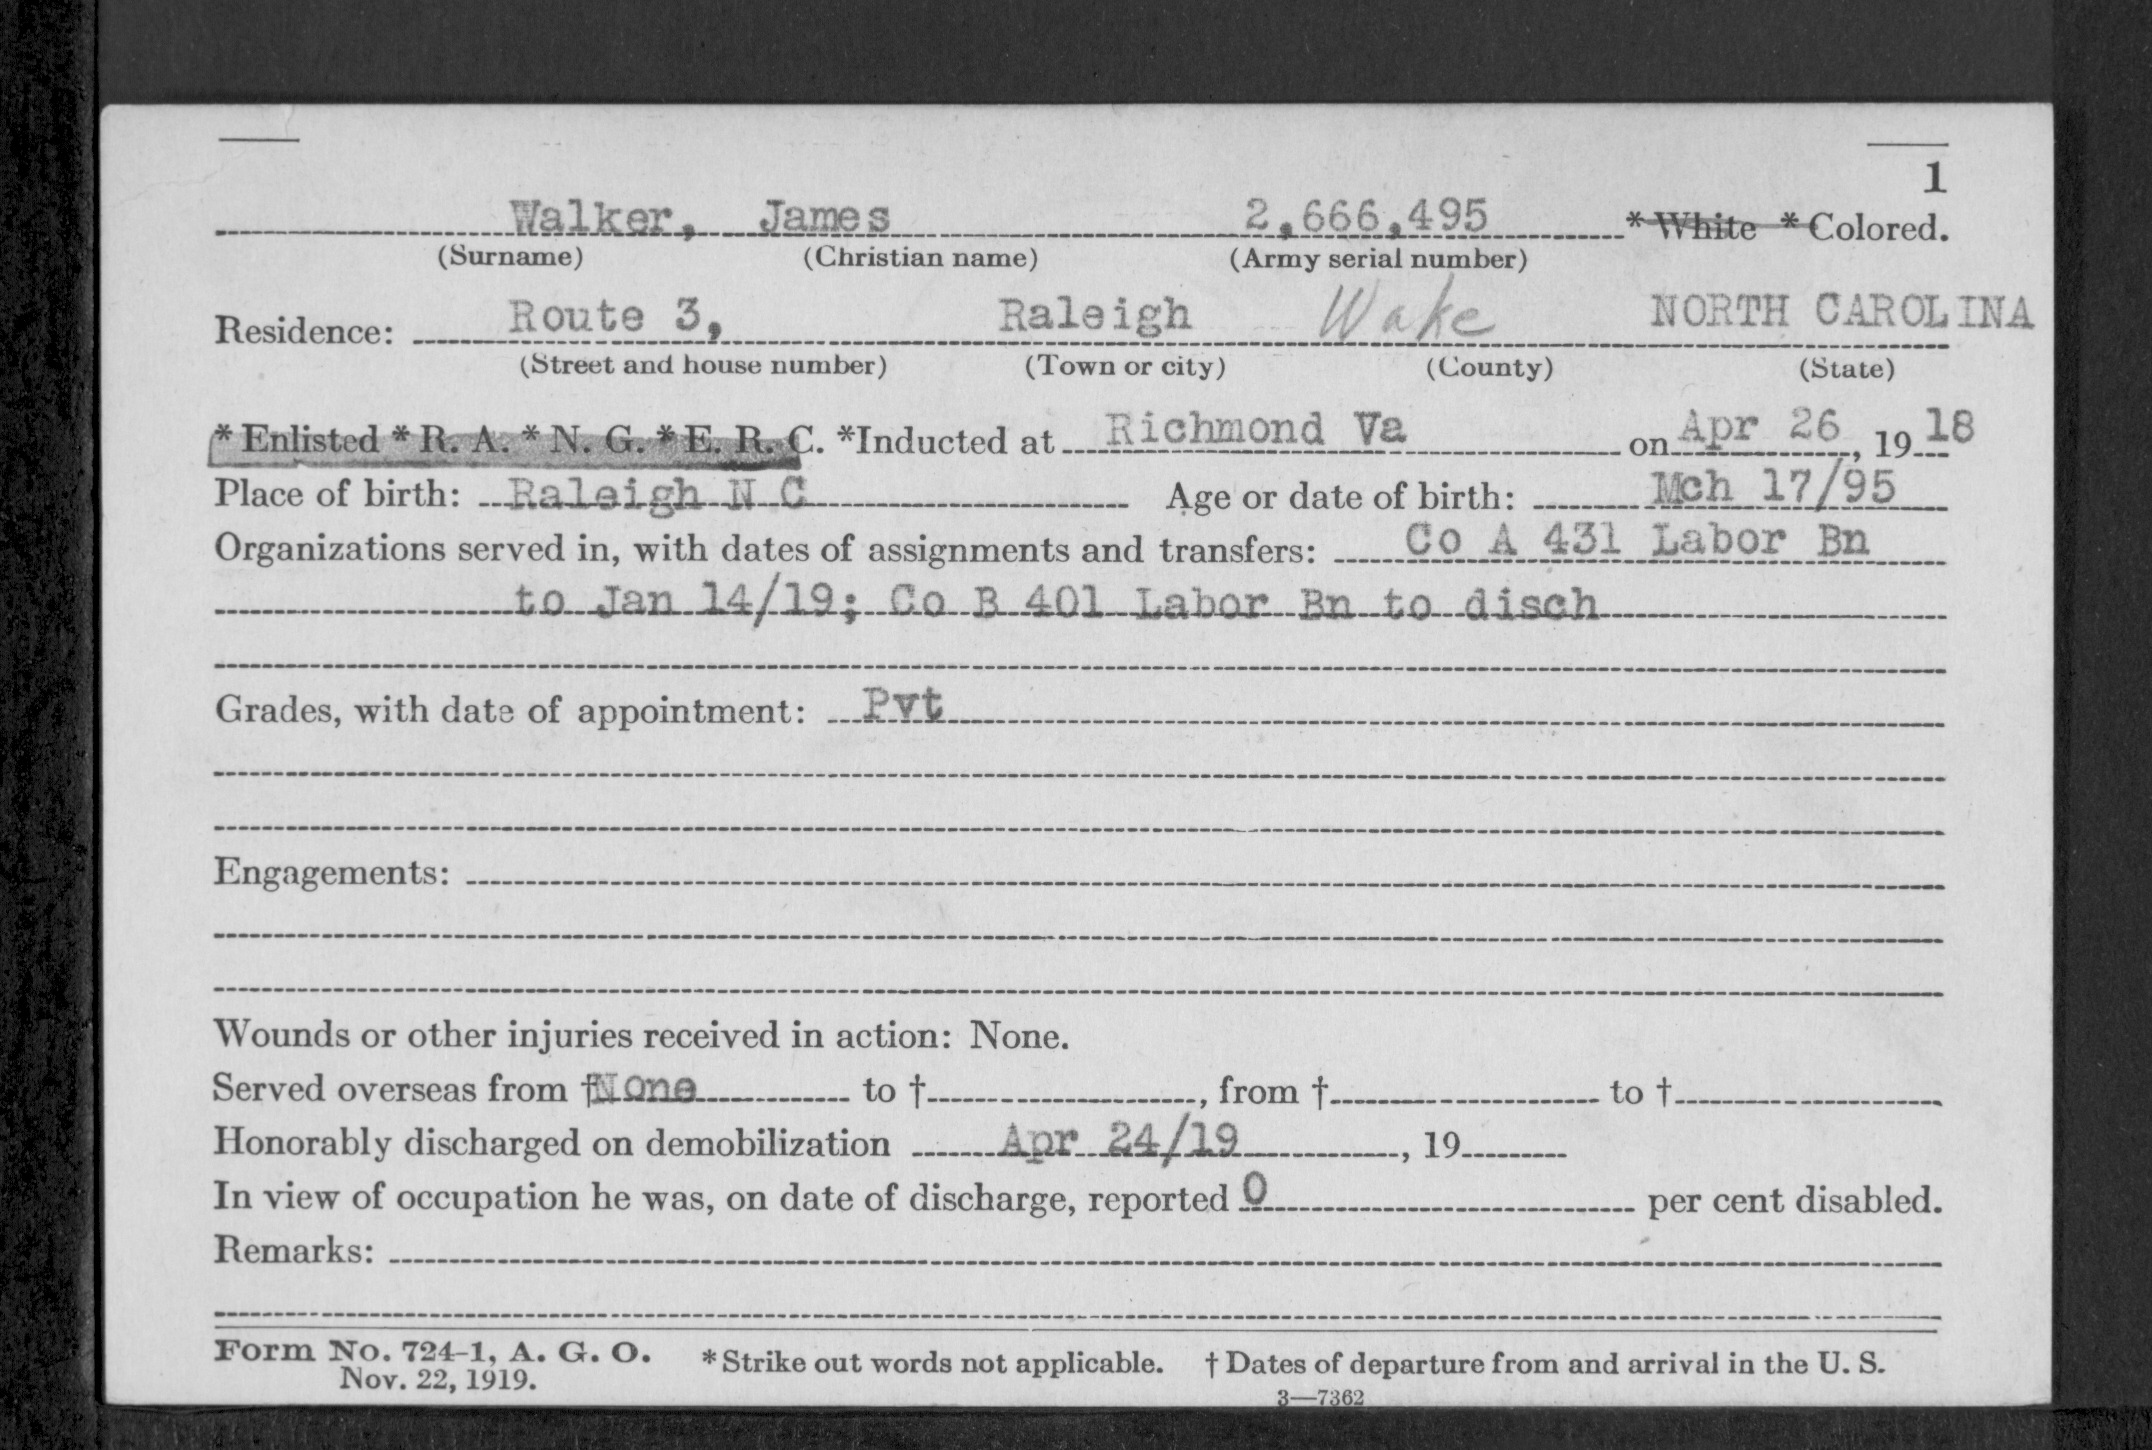 1
Walker, James 2,666,495 * White * Colored.
(Surname) (Christian name) (Army serial number)
Residence: Route 3, Raleigh Wake NORTH CAROLINA
(Street and house number) (Town or city) (County) (State)
* Enlisted * R. A. * N. G. * E. R. C. *Inducted at Richmond Va on Apr 26, 1918
Place of birth: Raleigh N C Age or date of birth: Mch 17/95
Organizations served in, with dates of assignments and transfers: Co A 431 Labor Bn
to Jan 14/19; Co B 401 Labor Bn to disch
Grades, with date of appointment: Pvt
Engagements:
Wounds or other injuries received in action: None.
Served overseas from † None to †, from † to †
Honorably discharged on demobilization Apr 24/19, 19
In view of occupation he was, on date of discharge, reported 0 per cent disabled.
Remarks:
Form No. 724-1, A. G. O. * Strike out words not applicable. † Dates of departure from and arrival in the U. S.
Nov. 22, 1919.
3—7362